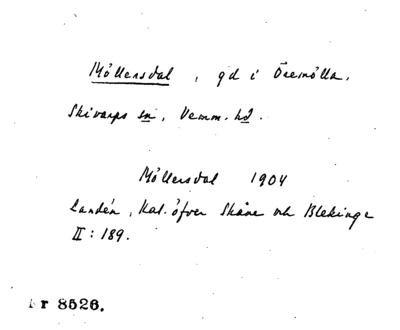 Möllersdal, gd i Öremölla,
Skivarps sn, Vemm. hd.
Möllersdal 1904
Landén, Kat. öfver Skåne och Blekinge
II: 189.
r 8526.